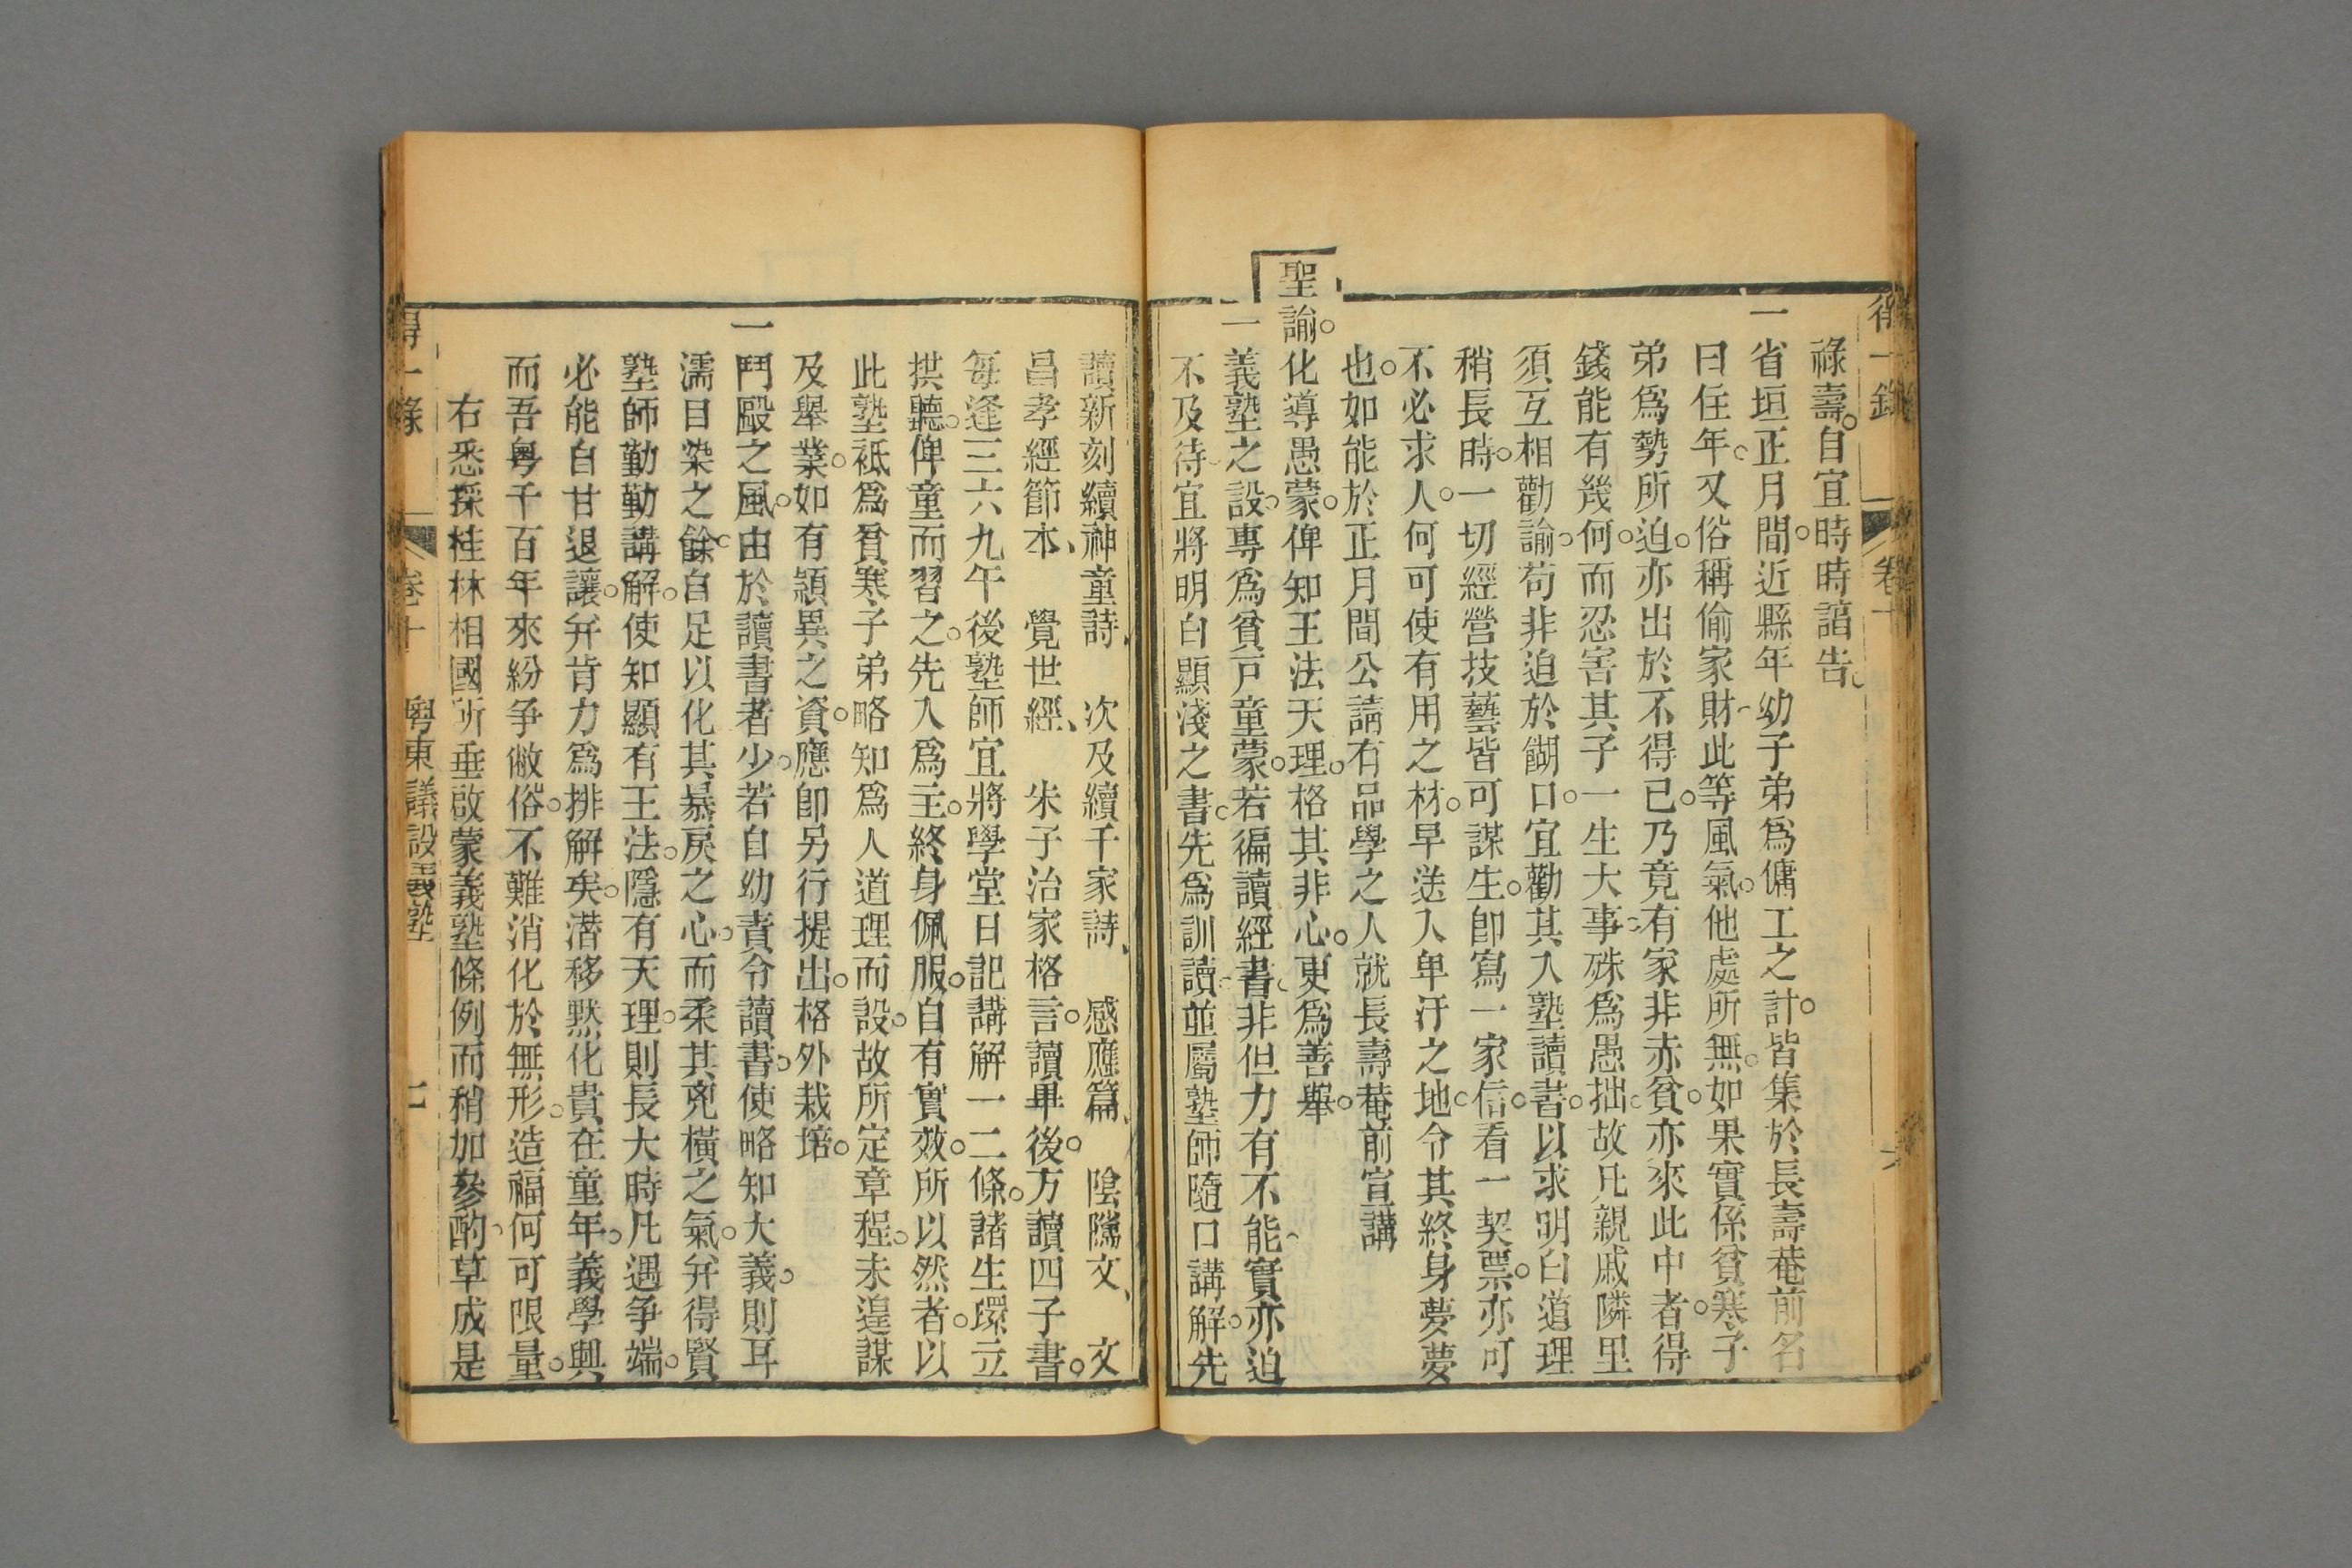 得一錄 卷十 六
祿壽。自宜時時諳告。
一省垣正月間。近縣年幼子弟爲傭工之計。皆集於長壽菴前名
曰任年。又俗稱偷家財。此等風氣。他處所無。如果實係貧寒子
弟爲勢所迫。亦出於不得已。乃竟有家非赤貧。亦來此中者。得
錢能有幾何。而忍害其子一生大事。殊爲愚拙。故凡親戚隣里
須互相勸諭。苟非迫於餬口。宜勸其入塾讀書。以求明白道理
稍長時。一切經營技藝皆可謀生。卽寫一家信。看一契票。亦可
不必求人。何可使有用之材。早送入卑汙之地。令其終身夢夢
也。如能於正月間公請有品學之人就長壽菴前宣講
聖諭。化導愚蒙。俾知王法天理。格其非心。更爲善舉。
一義塾之設。專爲貧戸童蒙。若徧讀經書。非但力有不能。實亦迫
不及待。宜將明白顯淺之書。先爲訓讀。並屬塾師隨口講解。先
讀新刻續神童詩、次及續千家詩、感應篇、陰隲文、文
昌孝經節本、覺世經、朱子治家格言。讀畢後。方讀四子書。
每逢三六九午後塾師宜將學堂日記講解一二條。諸生環立
拱聽。俾童而習之。先入爲主。終身佩服。自有實效。所以然者。以
此塾祗爲貧寒子弟略知爲人道理而設。故所定章程。未遑謀
及舉業。如有穎異之資。應卽另行提出。格外栽培。
一鬥毆之風。由於讀書者少。若自幼責令讀書。使略知大義。則耳
濡目染之餘。自足以化其暴戾之心。而柔其兇橫之氣。幷得賢
塾師勤勤講解。使知顯有王法。隱有天理。則長大時凡遇爭端。
必能自甘退讓。幷肯力爲排解矣。潛移默化。貴在童年。義學興
而吾粵千百年來紛爭敝俗。不難消化於無形。造福何可限量。
右悉採桂林相國所垂啟蒙義塾條例而稍加參酌。草成是
得一錄 卷十 粵東議設義塾 七